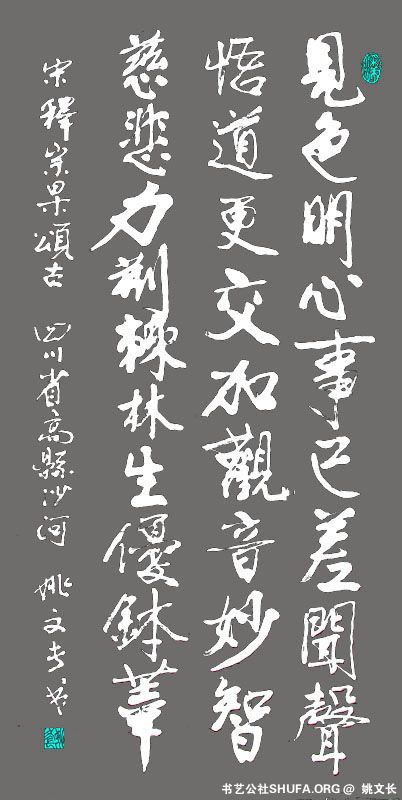 見色明心事已差聞聲
悟道更交加觀音妙智
慈悲力荆棘林生優鉢華
宋釋崇杲頌古 四川省高縣沙河 姚文长书
书艺公社SHUFA.ORG @ 姚文长